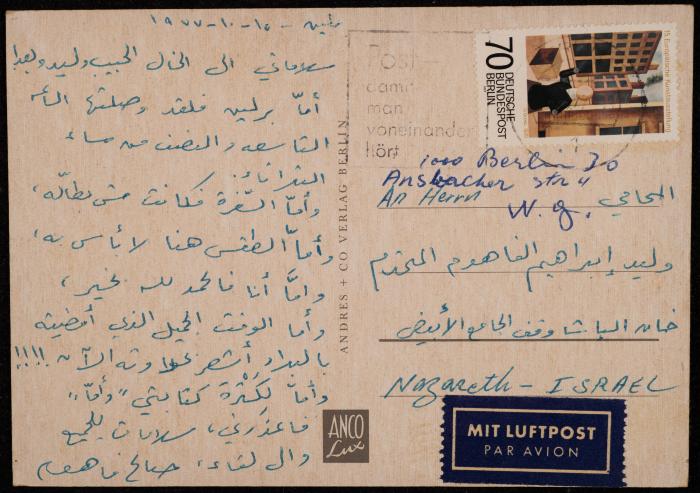 برلين - ١٥-١٠-١٩٧٧
سلاماتي الى الخال الحبيب وليد وبعد
أمّا برلين فلقد وصلتها الساعة
التاسعة والنصف من مساء
وأمّا السّفرة فكانت مش بطّالة،
وأمّا الطقس هنا لا بأس به،
وأمّا أنا فالحمد لله بخير،
وأما الوقت الجميل الذي أمضيته
بالبلاد أشعر بحلاوته الآن !!!!
وأمّا لكثرة كتابتي "وأمّا"
فاعذرني، سلامات للجميع
والى لقاء، صالح فاهوم
ANDRES + CO VERLAG BERLIN
ANCO
Lux
Post-
damit
man
voneinander
hört
70
DEUTSCHE
BUNDESPOST
BERLIN
15. Europäische Kunstausstellung
1000 Berlin 30
Ansbacher Str 4
An Herrn
W. G.
المحامي
وليد إبراهيم الفاهوم المحترم
خان الباشا وقف الجامع الأبيض
Nazareth - ISRAEL
MIT LUFTPOST
PAR AVION